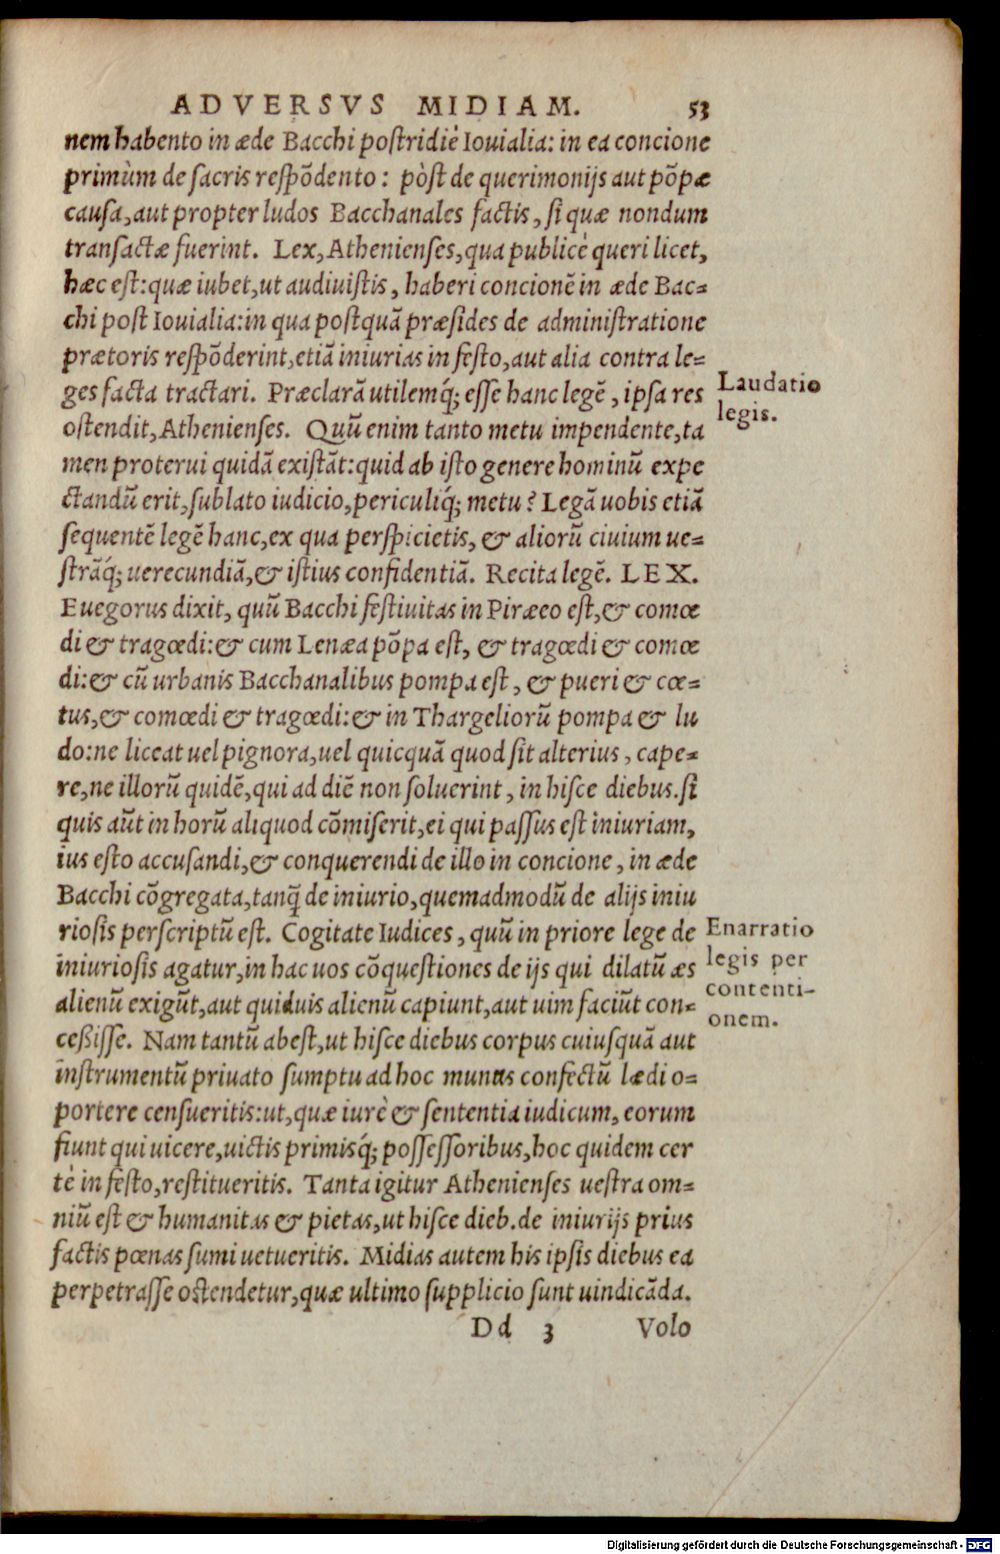 ADVERSVS MIDIAM. 53
nem habento in æde Bacchi postridiè Iouialia: in ea concione
primùm de sacris respõdento: pòst de querimonijs aut põpæ
causa, aut propter ludos Bacchanales factis, si quæ nondum
transactæ fuerint. Lex, Athenienses, qua publicè queri licet,
hæc est: quæ iubet, ut audiuistis, haberi concionẽ in æde Bac-
chi post Iouialia: in qua postquã præsides de administratione
prætoris respõderint, etiã iniurias in festo, aut alia contra le-
ges facta tractari. Præclarã utilemq́; esse hanc legẽ, ipsa res
Laudatio
legis.
ostendit, Athenienses. Quũ enim tanto metu impendente, ta
men proterui quidã existãt: quid ab isto genere hominũ expe
ctandũ erit, sublato iudicio, periculiq́; metu? Legã uobis etiã
sequentẽ legẽ hanc, ex qua perspicietis, & aliorũ ciuium ue-
strãq́; uerecundiã, & istius confidentiã. Recita legẽ. LEX.
Euegorus dixit, quũ Bacchi festiuitas in Piræeo est, & comœ
di & tragœdi: & cum Lenæa põpa est, & tragœdi & comœ
di: & cũ urbanis Bacchanalibus pompa est, & pueri & cœ-
tus, & comœdi & tragœdi: & in Thargeliorũ pompa & lu
do: ne liceat uel pignora, uel quicquã quod sit alterius, cape-
re, ne illorũ quidẽ, qui ad diẽ non soluerint, in hisce diebus. si
quis aũt in horũ aliquod cõmiserit, ei qui passus est iniuriam,
ius esto accusandi, & conquerendi de illo in concione, in æde
Bacchi cõgregata, tanq̃ de iniurio, quemadmodũ de alijs iniu
riosis perscriptũ est. Cogitate Iudices, quũ in priore lege de
Enarratio
legis per
contenti-
onem.
iniuriosis agatur, in hac uos cõquestiones de ijs qui dilatũ æs
alienũ exigũt, aut quiduis alienũ capiunt, aut uim faciũt con-
ceßisse. Nam tantũ abest, ut hisce diebus corpus cuiusquã aut
instrumentũ priuato sumptu ad hoc munus confectũ lædi o-
portere censueritis: ut, quæ iurè & sententia iudicum, eorum
fiunt qui uicere, uictis primisq́; possessoribus, hoc quidem cer
tè in festo, restitueritis. Tanta igitur Athenienses uestra om-
niũ est & humanitas & pietas, ut hisce dieb. de iniurijs prius
factis pœnas sumi uetueritis. Midias autem his ipsis diebus ea
perpetrasse ostendetur, quæ ultimo supplicio sunt uindicãda.
Dd 3 Volo
Digitalisierung gefördert durch die Deutsche Forschungsgemeinschaft - DFG